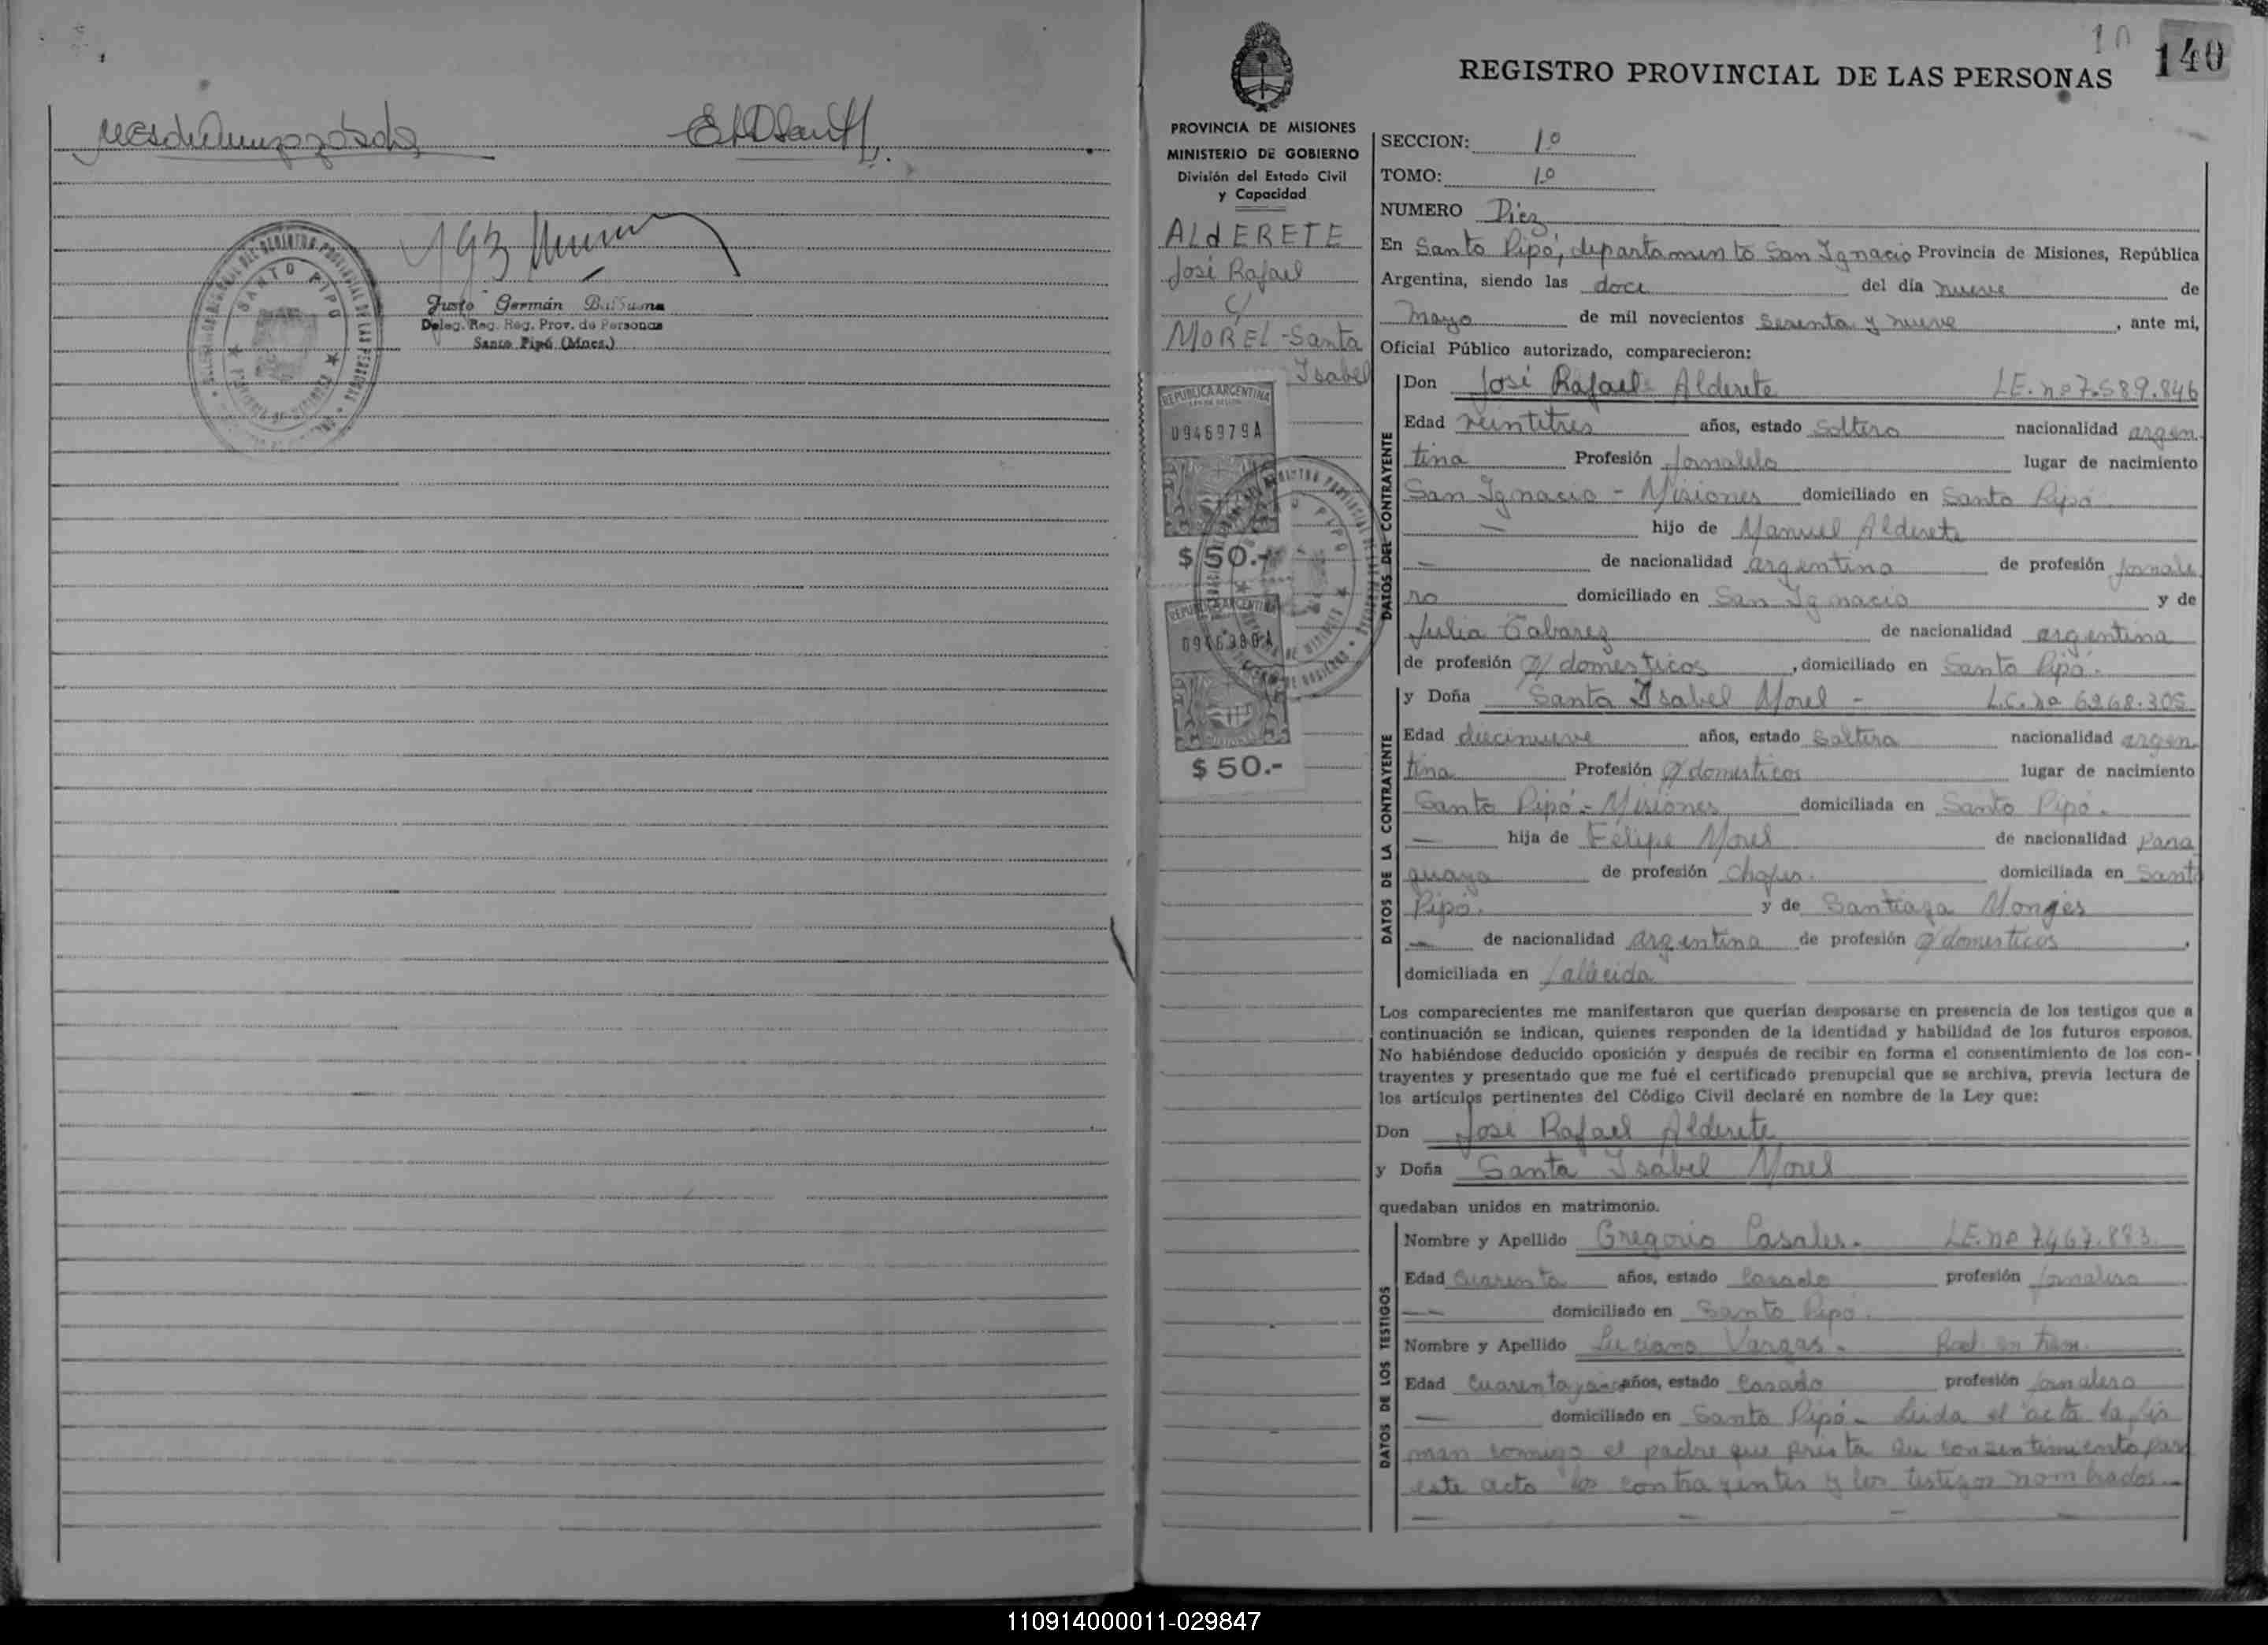 Justo Germán Balsuma
Deleg. Reg. Reg. Prov. de Personas
Santo Pipó (Mnes.)
SANTO PIPO
10
140
REGISTRO PROVINCIAL DE LAS PERSONAS
PROVINCIA DE MISIONES
MINISTERIO DE GOBIERNO
División del Estado Civil
y Capacidad
ALdERETE
José Rafael
c/
MOREL - Santa
Isabel
REPUBLICA ARGENTINA
0946979A
$ 50.-
REPUBLICA ARGENTINA
0946980A
$ 50.-
SECCION: 1º
TOMO: 1º
NUMERO Diez
En Santo Pipó, departamento San Ignacio Provincia de Misiones, República
Argentina, siendo las doce del día nueve de
Mayo de mil novecientos sesenta y nueve, ante mi,
Oficial Público autorizado, comparecieron:
DATOS DEL CONTRAYENTE
Don José Rafael Alderete LE. nº 7.589.846
Edad veintitres años, estado soltero nacionalidad argen
tina Profesión Jornalero lugar de nacimiento
San Ignacio - Misiones domiciliado en Santo Pipó
— hijo de Manuel Alderete
— de nacionalidad argentina de profesión jornale
ro domiciliado en San Ignacio y de
Julia Tabarez de nacionalidad argentina
de profesión q/ domesticos, domiciliado en Santo Pipó.
DATOS DE LA CONTRAYENTE
y Doña Santa Isabel Morel - L.C. nº 6268.305
Edad diecinueve años, estado soltera nacionalidad argen
tina Profesión q/ domesticos lugar de nacimiento
Santo Pipó - Misiones domiciliada en Santo Pipó.
— hija de Felipe Morel de nacionalidad para
guaya de profesión chofer. domiciliada en Santo
Pipó. y de Santiaga Monges
— de nacionalidad argentina de profesión q/ domesticos,
domiciliada en fallecida
Los comparecientes me manifestaron que querían desposarse en presencia de los testigos que a
continuación se indican, quienes responden de la identidad y habilidad de los futuros esposos.
No habiéndose deducido oposición y después de recibir en forma el consentimiento de los con-
trayentes y presentado que me fué el certificado prenupcial que se archiva, previa lectura de
los artículos pertinentes del Código Civil declaré en nombre de la Ley que:
Don José Rafael Alderete
y Doña Santa Isabel Morel
quedaban unidos en matrimonio.
DATOS DE LOS TESTIGOS
Nombre y Apellido Gregorio Casales. LE. nº 7.467.883.
Edad cuarenta años, estado casado profesión jornalero
— domiciliado en Santo Pipó.
Nombre y Apellido Luciano Vargas. Rad. en trám.
Edad cuarenta y años, estado casado profesión jornalero
— domiciliado en Santo Pipó - Leida el acta la fir
man conmigo el padre que presta su consentimiento para
este acto los contrayentes y los testigos nombrados.
110914000011-029847